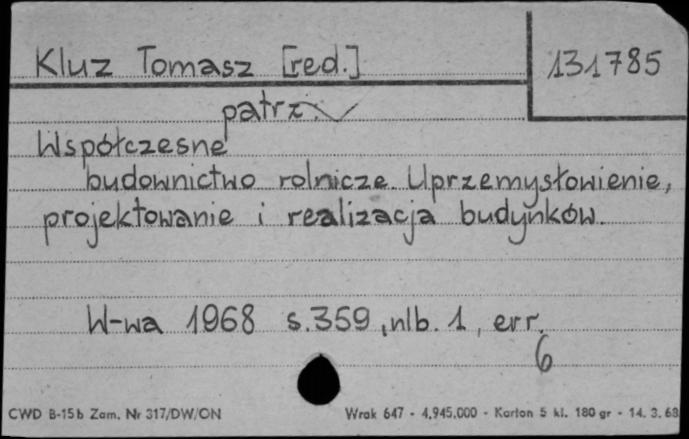 Kluz Tomasz [red.]
131785
patrz:
Współczesne
budownictwo rolnicze. Uprzemysłowienie,
projektowanie i realizacja budynków.
W-wa 1968 s.359, nlb. 1, err.
6
CWD B-15b Zam. Nr 317/DW/ON
Wrak 647 - 4,945.000 - Karton 5 kl. 180 gr - 14. 3. 68